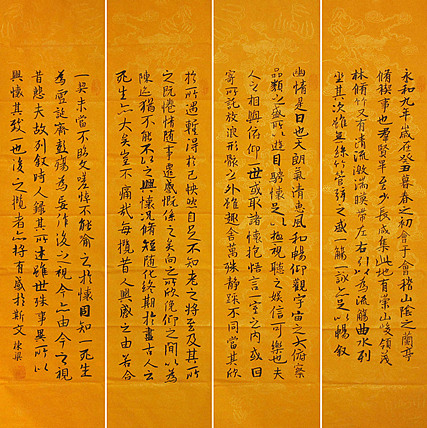 永和九年歲在癸丑暮春之初會于會稽山陰之蘭亭
脩稧事也羣賢畢至少長咸集此地有崇山峻領茂
林脩竹又有清流激湍暎帶左右引以為流觴曲水列
坐其次雖無絲竹管弦之盛一觴一詠亦足以暢敘
幽情是日也天朗氣清惠風和暢仰觀宇宙之大俯察
品類之盛所以遊目騁懷足以極視聽之娛信可樂也夫
人之相與俯仰一世或取諸懷抱悟言一室之內或因
寄所託放浪形骸之外雖趣舍萬殊靜躁不同當其欣
於所遇暫得於己怏然自足不知老之將至及其所
之既惓情隨事遷感慨係之矣向之所欣俛仰之間以為
陳迹猶不能不以之興懷況脩短隨化終期於盡古人云
死生亦大矣豈不痛哉每攬昔人興感之由若合
一契未嘗不臨文嗟悼不能喻之於懷固知一死生
為虛誕齊彭殤為妄作後之視今亦由今之視
昔悲夫故列敘時人錄其所述雖世殊事異所以
興懷其致一也後之攬者亦將有感於斯文